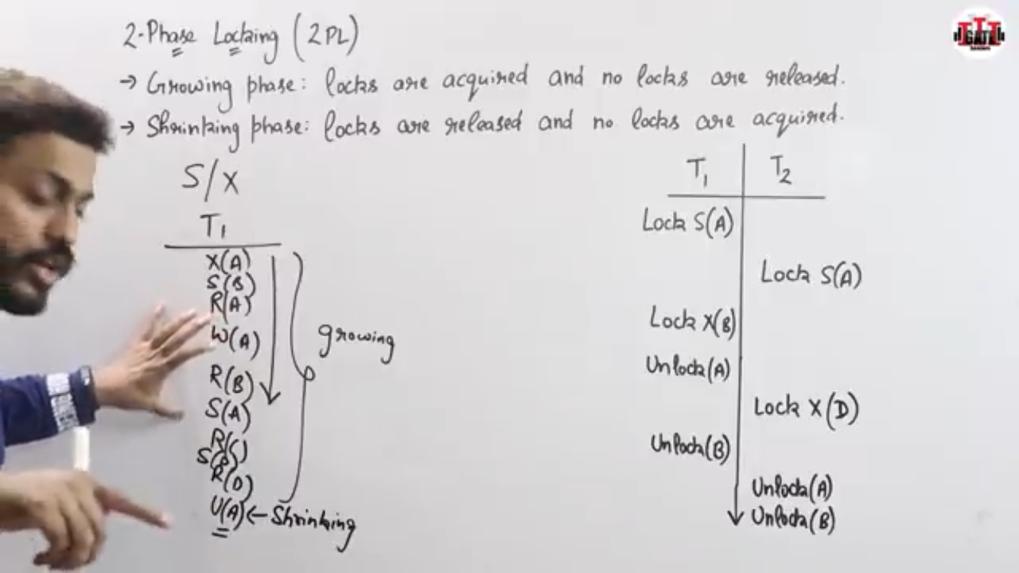 2-Phase Locking (2PL)
→ Growing phase: locks are acquired and no locks are released.
→ Shrinking phase: locks are released and no locks are acquired.
S/X
T1
X(A)
S(B)
R(A)
W(A)
R(B)
S(A)
S(B)
R(D)
U(A) ← Shrinking
growing
T1 T2
Lock S(A)
Lock S(A)
Lock X(B)
Unlock(A)
Lock X(D)
Unlock(B)
Unlock(A)
Unlock(B)
GATE